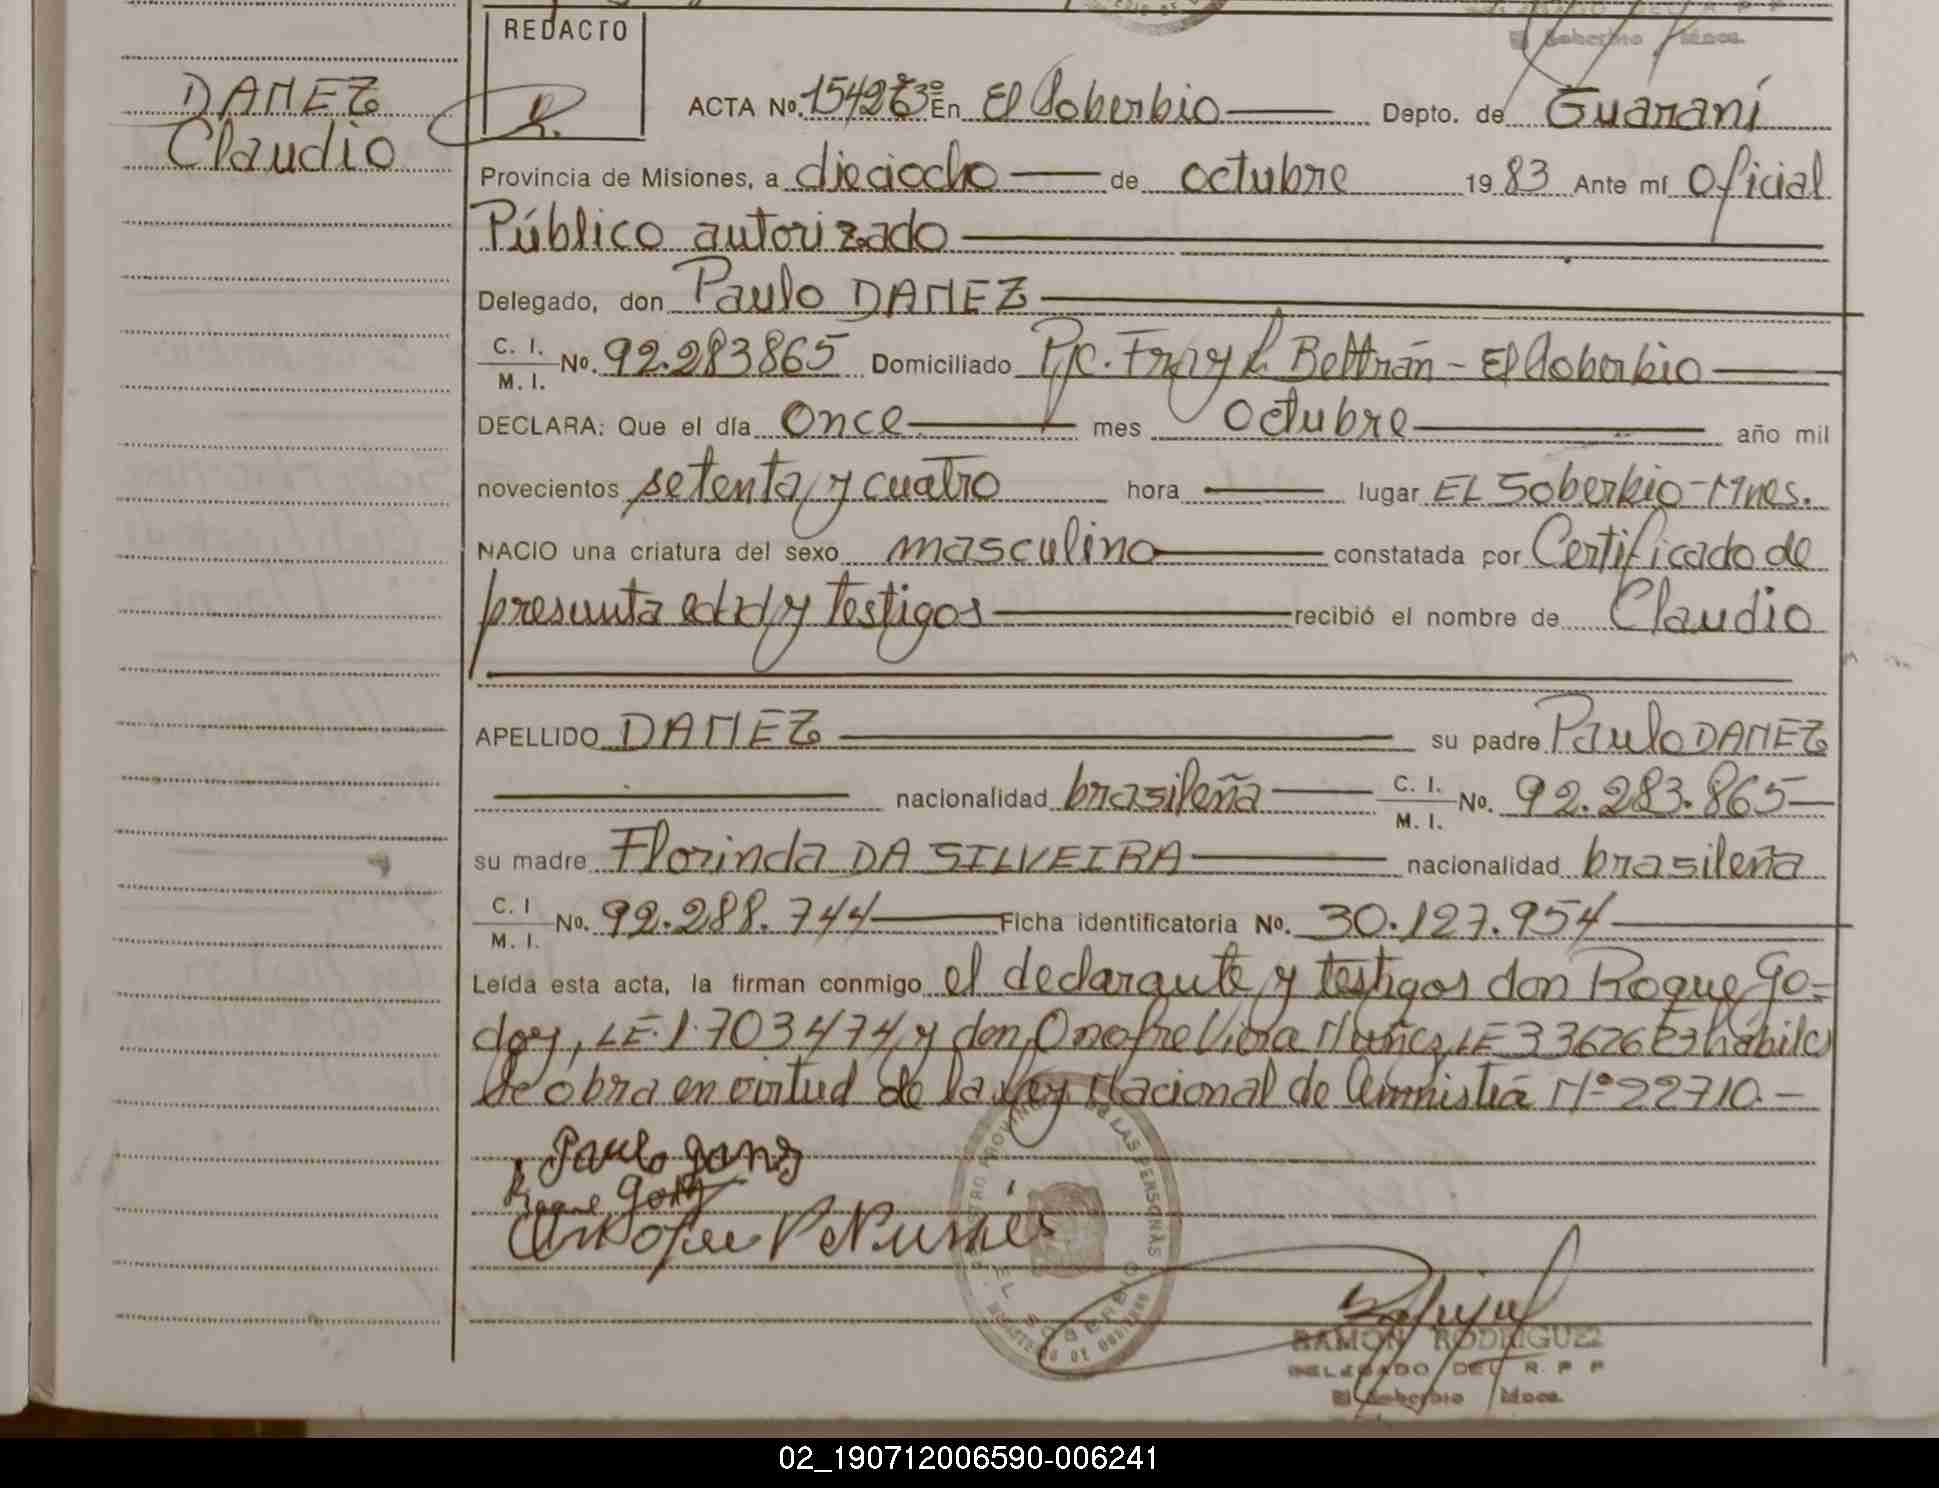 REDACTO
DANEZ
Claudio
ACTA Nº. En El Soberbio Depto. de Guaraní
Provincia de Misiones, a dieciocho de octubre 1983 Ante mí Oficial
Público autorizado
Delegado, don Paulo DANEZ
C. I.
M. I. Nº. 92.283865 Domiciliado Pje. Fray L. Beltrán - El Soberbio
DECLARA: Que el día once mes octubre año mil
novecientos setenta y cuatro hora lugar EL Soberbio-Mnes.
NACIO una criatura del sexo masculino constatada por Certificado de
presunta edad y testigos recibió el nombre de Claudio
APELLIDO DANEZ su padre Paulo DANEZ
nacionalidad brasileña C. I.
M. I. Nº. 92.283.865
su madre Florinda DA SILVEIRA nacionalidad brasileña
C. I
M. I. Nº. 92.288.744 Ficha identificatoria Nº. 30.127.954
Leída esta acta, la firman conmigo el declarante y testigos don Roque Go=
doy, LE.1.703474, y don Onofre Viera Nuñez, LE
de obra en virtud de la Ley Nacional de Amnistía Nº 22710.-
REGISTRO PROVINCIAL DE LAS PERSONAS
EL SOBERBIO
RAMON RODRIGUEZ
DELEGADO DEL R. P. P
El Soberbio Mnes.
02_190712006590-006241